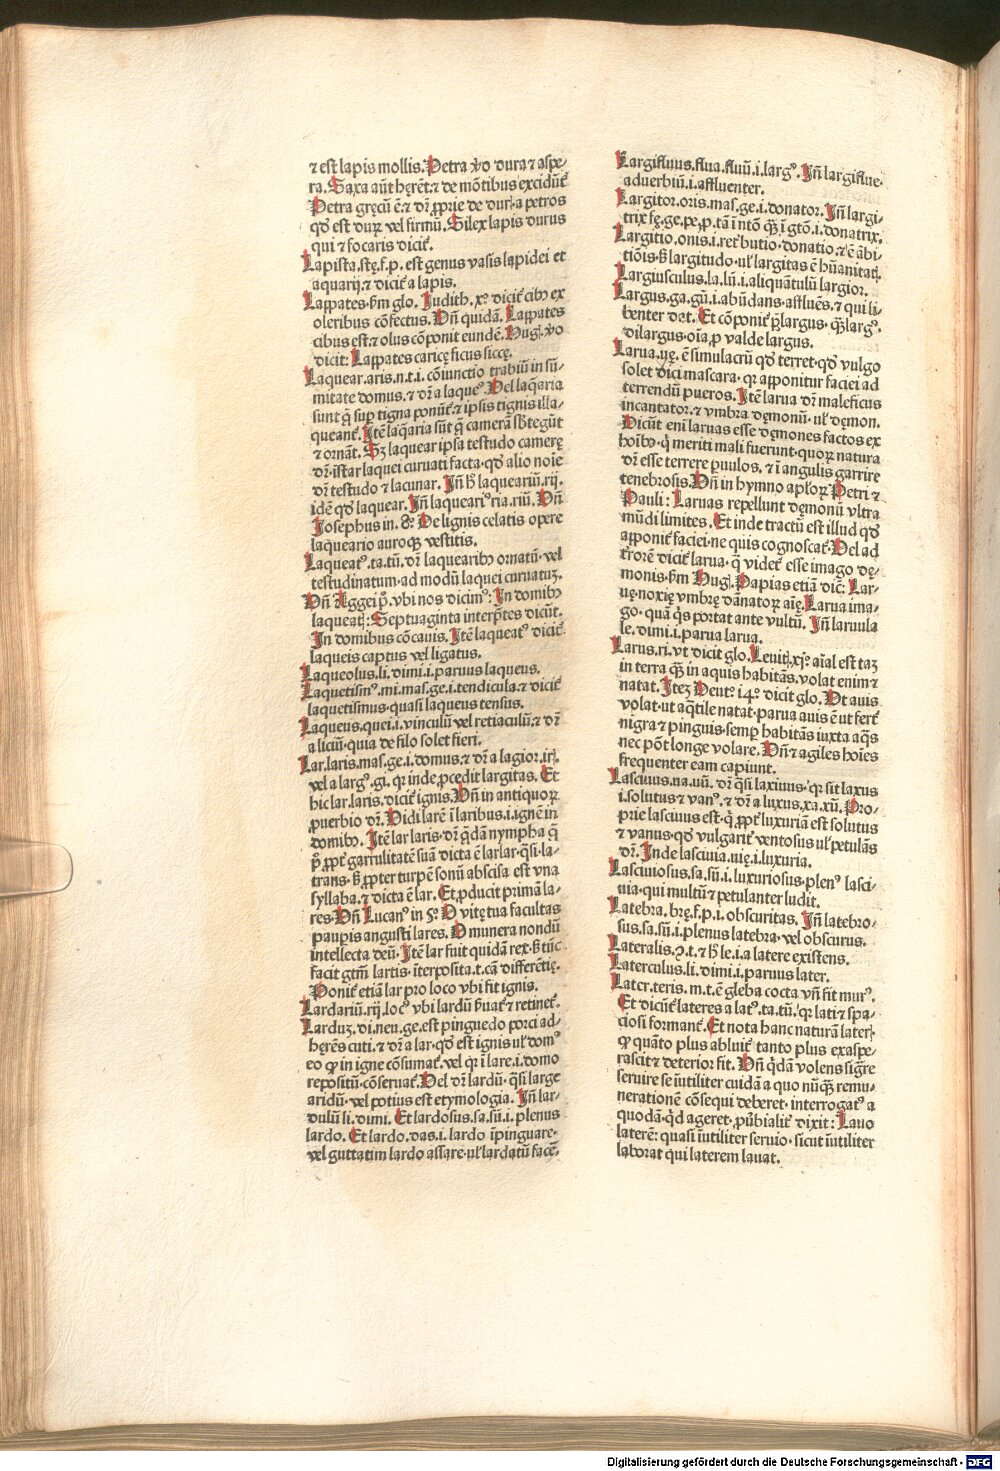 ⁊ est lapis mollis. Petra v̓o dura ⁊ aspe-
ra. Saxa aūt herēt: ⁊ de mōtibus excidūt᷑
Petra grecū ē: ⁊ dr̄ ꝓprie de dur. a petros
qd̓ est duꝝ vel firmū. Silex lapis durus
qui ⁊ focaris dicit᷑.
Lapista.stę.f.p. est genus vasis lapidei et
aquarij. ⁊ dicit᷑ a lapis.
Lappates. ẜm glo. Judith. xº dicit᷑ cibꝰ ex
oleribus cōfectus. Vn̄ quidā. Lappates
cibus est: ⁊ olus cōponit eundē. Hugͥ. v̓o
dicit: Lappates caricę ficus siccę.
Laquear.aris.n.t.i. cōiunctio trabiū in sū-
mitate domus. ⁊ dr̄ a laqueꝰ. Vel laq̄aria
sunt q̄ suꝑ tigna ponūt᷑ ⁊ ipsis tignis illa-
queant᷑. Itē laq̄aria sūt q̄ camerā sb̓tegūt
⁊ ornāt. Sꝫ laquear ipsa testudo camerę
dr̄. īstar laquei curuati facta. qd̓ alio noīe
dr̄ testudo ⁊ lacunar. Jn̄ hͦ laqueariū.rij.
idē qd̓ laquear. Jn̄ laqueariꝰ.ria.riū. Vn̄
Josephus in. 8º De lignis celatis opere
laqueario auroqꝫ vestitis.
Laqueatꝰ.ta.tū. dr̄ laquearibꝰ ornatū. vel
testudinatum. ad modū laquei curuatuꝫ.
Vn̄ Aggei pͦ. vbi nos dicimꝰ: Jn domibꝰ
laqueatꝭ: Septuaginta interp̄tes dicūt.
Jn domibus cōcauis. Jtē laqueatꝰ dicit᷑
laqueis captus vel ligatus.
Laqueolus.li. dimi. i. paruus laqueus.
Laquetismꝰ.mi.mas.ge.i. tendicula. ⁊ dicit᷑
laquetismus. quasi laqueus tensus.
Laqueus.quei.i. vinculū vel retiaculū. ⁊ dr̄
a liciū. quia de filo solet fieri.
Lar.laris.mas.ge.i. domus. ⁊ dr̄ a lagior.irꝭ.
vel a largꝰ.gi. qr inde ꝓcedit largitas. Et
hic lar.laris. dicit᷑ ignis. Vn̄ in antiquoꝝ
ꝓuerbio dr̄. Vidi larē ī laribus. i. ignē in
domibꝰ. Jtē lar laris. dr̄ q̄dā nympha q̄
pͦ ꝓpt̓ garrulitatē suā dicta ē larlar. q̄si la-
trans. ẜ ꝓpter turpē sonū abscisa est vna
syllaba. ⁊ dicta ē lar. Et ꝓducit primā la-
res. Vn̄ Lucanꝰ in 5º O vitę tua facultas
pauꝑis angusti lares. O munera nondū
intellecta deū. Jtē lar fuit quidā rex. ẜ tūc
facit gtm̄ lartis. īterposita.t. cā differētię.
Ponit᷑ etiā lar pro loco vbi fit ignis.
Lardariū.rij. locꝰ vbi lardū ẜuat᷑ ⁊ retinet᷑.
Larduꝫ.di.neu.ge. est pinguedo porci ad-
herēs cuti. ⁊ dr̄ a lar. qd̓ est ignis ul̓ domꝰ
eo ꝙ in igne cōsumat᷑. vel qr ī lare. i. domo
repositū cōseruat᷑. Vel dr̄ lardū. q̄si large
aridū. vel potius est etymologia. Jn̄ lar-
dulū li. dimi. Et lardosus.sa.sū.i. plenus
lardo. Et lardo.das.i. lardo īpinguare.
vel guttatim lardo assare. ul̓ lardatū facē.
Largifluus.flua.fluū.i. largꝰ. Jn̄ largiflue.
aduerbiū. i. affluenter.
Largitor.oris.mas.ge.i. donator. Jn̄ largi-
trix.fę.ge. pe. ꝓ. tā ī ntō qꝫ ī gtō. i. donatrix.
Largitio.onis.i. ret̓butio. donatio. ⁊ ē ābi-
tiōis. ẜ largitudo. ul̓ largitas ē hūanitatꝭ.
Largiusculus.la.lū.i. aliquātulū largior.
Largus.ga.gū.i. abūdans. affluēs. ⁊ qui li-
benter dat. Et cōponit᷑ p̄largus. qꝫlargꝰ.
dilargus. oīa ꝓ valde largus.
Larua.uę. ē simulacrū qd̓ terret. qd̓ vulgo
solet dici mascara. qr apponitur faciei ad
terrendū pueros. Jtē larua dr̄ maleficus
incantator. ⁊ vmbra dęmonū. ul̓ dęmon.
Dicūt enī laruas esse dęmones factos ex
hoībꝰ. q̄ meriti mali fuerunt. quoꝝ natura
dr̄ esse terrere ꝑuulos. ⁊ ī angulis garrire
tenebrosis. Vn̄ in hymno apl̓oꝝ Petri ⁊
Pauli: Laruas repellunt dęmonū vltra
mūdi limites. Et inde tractū est illud qd̓
apponit᷑ faciei. ne quis cognoscat᷑. Vel ad
t̓rorē dicit᷑ larua. q̄ videt᷑ esse imago dę-
monis. ẜm Hugͥ. Papias etiā dic̄: Lar-
uę. noxię vmbrę dānatoꝝ aīę. Larua ima-
go. quā q̄s portat ante vultū. Jn̄ laruula
le. dimi. i. parua larua.
Larus.ri. vt dicit glo. Leuit̓. xjº aīal est taꝫ
in terra qꝫ in aquis habitās. volat enim ⁊
natat. Jteꝫ Deut̓º 14º dicit glo. Vt auis
volat. ut aq̄tile natat. parua auis ē ut fert᷑
nigra ⁊ pinguis. semꝑ habitās iuxta aq̄s
nec pōt longe volare. Vn̄ ⁊ agiles hoīes
frequenter eam capiunt.
Lasciuus.na.uū. dr̄ q̄si laxiuus. qr sit laxus
i. solutus ⁊ vanꝰ. ⁊ dr̄ a luxus.xa.xū. Pro-
prie lasciuus est. q̄ ꝓpt̓ luxuriā est solutus
⁊ vanus. qd̓ vulgarit̓ ventosus ul̓ petulās
dr̄. Jnde lasciuia.uię.i. luxuria.
Lasciuiosus.sa.sū.i. luxuriosus. plenꝰ lasci-
uia. qui multū ⁊ petulanter ludit.
Latebra.brę.f.p.i. obscuritas. Jn̄ latebro-
sus.sa.sū.i. plenus latebra. vel obscurus.
Lateralis.ꝯ.t. ⁊ hͦ le. i. a latere existens.
Laterculus.li. dimi. i. paruus later.
Later.teris.m.t. ē gleba cocta vn̄ fit murꝰ.
Et dicūt᷑ lateres a latꝰ.ta.tū. qr lati ⁊ spa-
ciosi formant᷑. Et nota hanc naturā laterꝭ.
ꝙ quāto plus abluit᷑ tanto plus exaspe-
rascit ⁊ deterior fit. Vn̄ q̄dā volens sig̓re
seruire se īutiliter cuidā a quo nūqꝫ remu-
nerationē cōsequi deberet. interrogatꝰ a
quodā. qd̓ ageret. ꝓūbialit̓ dixit: Lauo
laterē: quasi īutiliter seruio. sicut īutiliter
laborat qui laterem lauat.
Digitalisierung gefördert durch die Deutsche Forschungsgemeinschaft - DFG